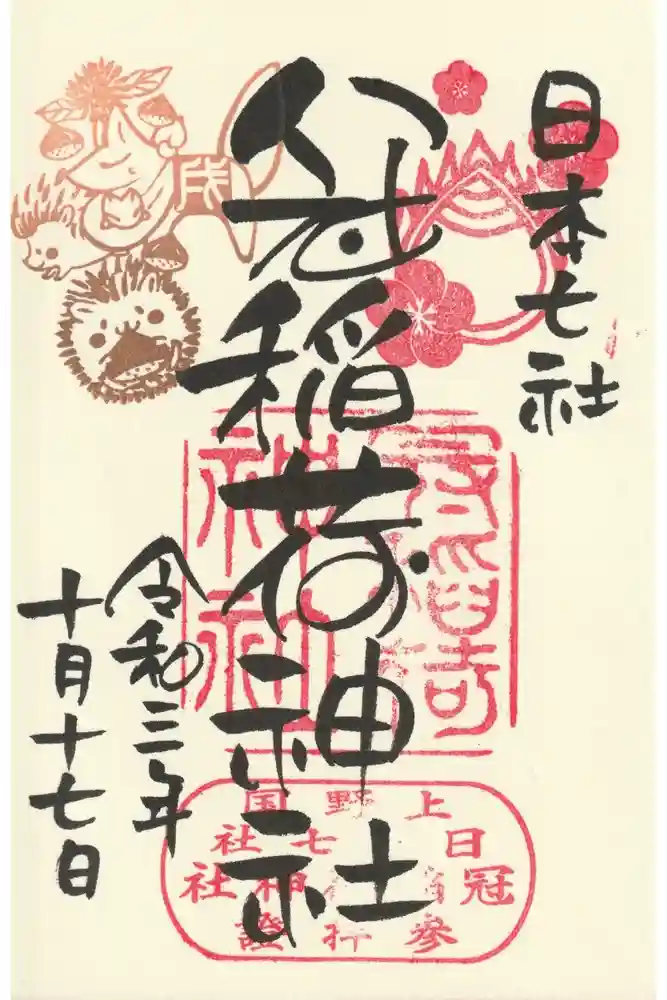 日本七社
冠稲荷神社
令和三年
十月十七日
冠稲荷
神社
上野国
日本七社
冠稲荷神社